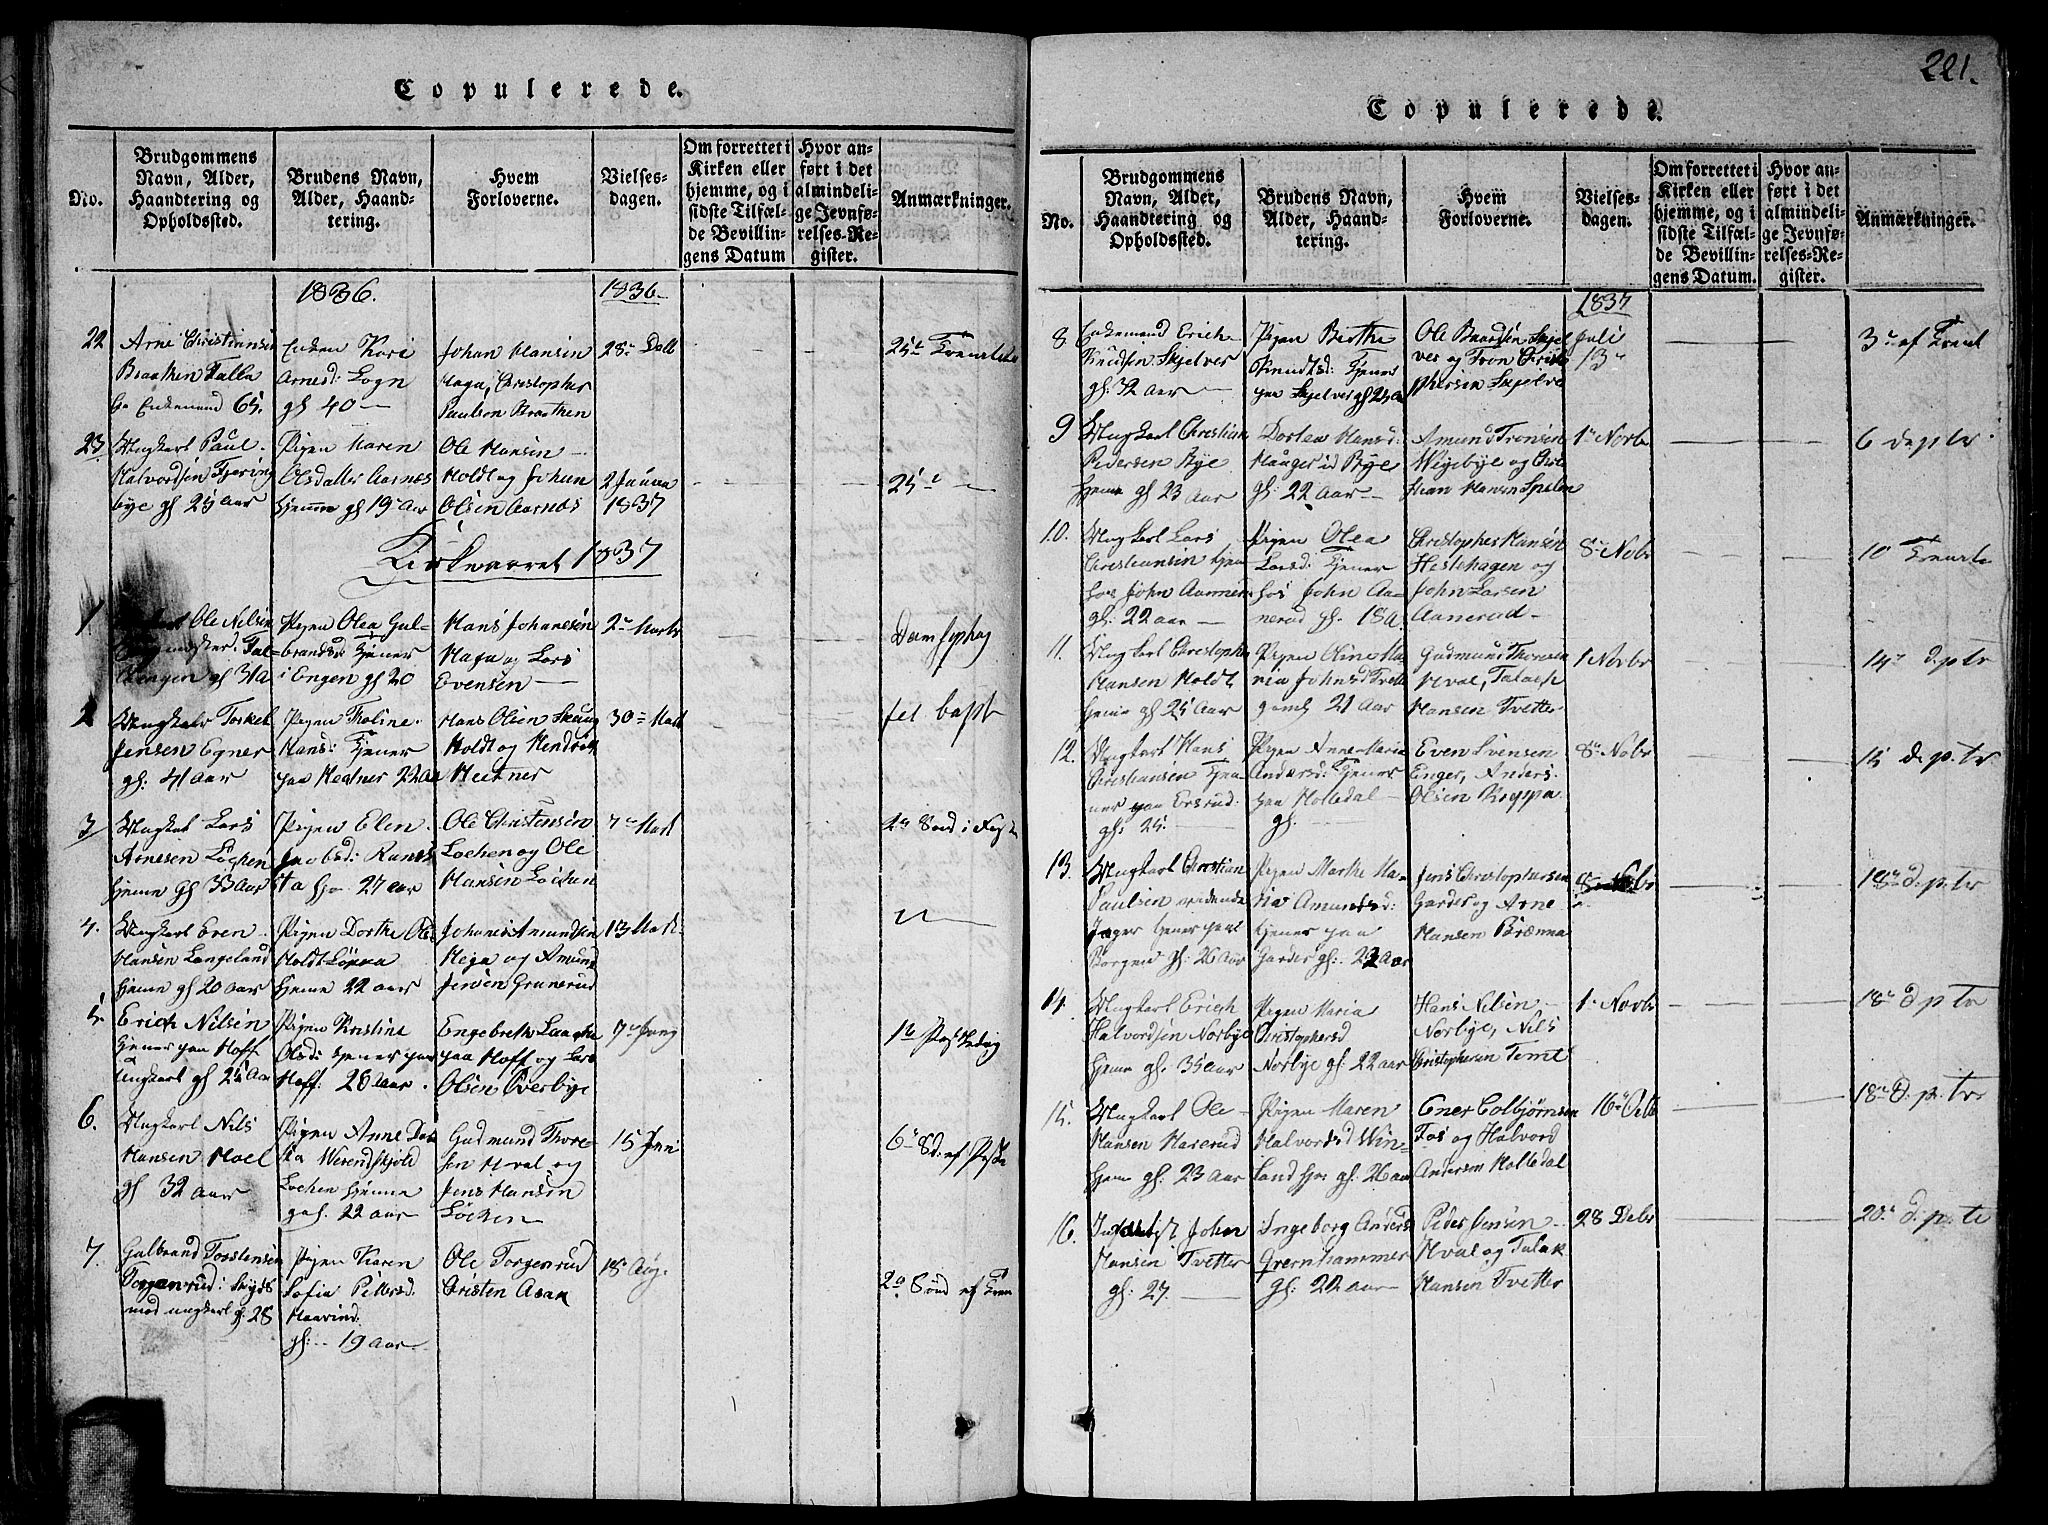 Copulerede.
No.
Brudgommens
Navn, Alder,
Haandtering og
Opholdssted.
Brudens Navn,
Alder, Haand-
tering.
Hvem
Forloverne.
Vielses-
dagen.
Om forrettet i
Kirken eller
hjemme, og i
sidste Tilfæl-
de Bevillin-
gens Datum
Hvor an-
ført i det
almindeli-
ge Jevnfø-
relses-Re-
gister.
Anmærkninger.
1836.
1836
22
Arne Christiansen
Braathen Falla
Enkemand 65.
Enken Kari
Arnesd: Logn
gl 40
Johan Hansen
Haga, Christopher
Paulsen Braathen
28
25
23
Ungkarl Paul
Halvordsen Fjering
bye gl 25 Aar
Pigen Karen
Olsdatter Aarnæs
hjemme gl 19 Aar
Ole Hansen
Holdt og Johan
Olsen Aarnæs
2 Janua
1837
25
Kirkeaaret 1837
1
Ole Nilsen
Engen gl 31a
Pigen Olea Gul-
brandsd: tjener
i Engen gl 20
Hans Johanesen
Haga og Lars
Evensen
2 Marts
2
Ungkarl Torkel
Jensen Egner
gl. 41 aar
Pigen Tholine
Hansd: tjener
paa Heitner 22 aa
Hans Olsen Skung
Holdt og Hendrik
Heitner
30 Mart
fei. bapt
3
Ungkarl Lars
Arnesen Løchen
hjeme gl 33 Aar
Pigen Elen
Jacobsd: Kans
ta hje 27 aar
Ole Christensen
Lochen og Ole
Hansen Lochen
7 Mart
4.
Ungkarl Even
Hansen Langeland
hjeme gl 20 aar
Pigen Dorthe Ols
Holdt Løkka
hjeme 22 aar
Johanis Amundsen
Heja og Amund
Jensen Grunerud
13 Mart
5.
Erich Nilsen
tjener paa Hoff
Ungkarl gl 25 Aar
Pigen Kristine
Olsd: tjener paa
Hoff: 28 Aar.
Engebreth Laache
paa Hoff og Lars
Olsen Overbye
7
6.
Ungkarl Nils
Hansen Hoel
gl 32 aar
Pigen Anne Dor
tea Werendskjold
Lochen hjemme
gl. 22 aar
Gudmund Thore-
sen Hval og
Jens Hansen
Løchen
15 Juni
7.
Gulbrand Torstensen
Torgenrud: Skyds
mod ungkarl gl 28
Pigen Karen
Sofia Pettersd.
gl: 19 aar
Ole Torgenrud
Cristen Asak
18 Aug.
221.
Copulerede.
No.
Brudgommens
Navn, Alder,
Haandtering og
Opholdssted.
Brudens Navn,
Alder, Haand-
tering.
Hvem
Forloverne.
Vielses-
dagen.
Om forrettet i
Kirken eller
hjemme, og i
sidste Tilfæl-
de Bevillin-
gens Datum.
Hvor an-
ført i det
almindeli-
ge Jevnfø-
relses-Re-
gister.
Anmærkninger.
1837
8
Enkemand Erich
Knudsen Skjelver
gl: 32 aar
Pigen Berthe
Knudtsd: tjener
paa Skjelver gl 25 a
Ole Baardsen Skjel
ver og Tron Christo
phersen Skjelve
Juli
13
9
Ungkarl Christian
Pedersen Bye
hjeme gl 23 Aar
Dortea Hansd:
Haugerud Bye
gl: 22 Aar
Amund Tronsen
Wigebye og Chri
stian Hansen Spelen
1 Novbr
6 d. p. tr.
10.
Ungkarl Lars
Christiansen tjen
hos John Aanner
gl: 22 aar
Pigen Olea
Larsd: tjener
hos John Aa-
nerud gl. 18 a.
Christopher Hansen
Hestehagen og
John Larsen
Aanerud
8 Nobr
11.
Ungkarl Christophe
Hansen Holdt
hjeme gl 25 Aar
Pigen Oline Ma-
ria Johnsd Tvette
gamel 21 Aar
Gudmund Thorsen
Hval, Talack
Hansen Tvetter
1 Novbr
14 d. p tr
12.
Ungkarl Hans
Christiansen tjen
ner paa Ersrud.
gl: 25.
Pigen Anne Maria
Andersd: tjener
paa Holledal
gl:
Even Svensen
Enger, Anders
Olsen Kroppa
8 Nobr
15 d. p. tr
13.
Ungkarl Christian
Paulsen
Jager tjener paa
Borgen gl: 26 Aar
Pigen Marthe Ma-
ria Amundsd:
tjener paa
Garder gl: 22 Aar
Jens Christophersen
Garder og Arne
Hansen Brænna
8 Nobr
18 d. p. tr
14.
Ungkarl Erich
Halvordsen Norbye
hjeme gl. 35 aar
Pigen Maria
Christophersd
Norbye gl: 22 aar
Hans Nilsen
Norbye, Nils
Christophersen Tomt
1 Novbr
18 d. p tr
15.
Ungkarl Ole
Hansen Harerud
hjeme gl: 23 aar
Pigen Maren
Halvordsd Win-
land hje: gl: 26 aar
Ener Colbjørnsen
Fos og Halvord
Andersen Holledal
16
18 d. p. tr
16.
John
Hansen Tvetter
gl: 27
Ingeborg Anders
Grernhammer
gl: 22 aar
Peder Jensen
Hval og Talak
Hansen Tvetter
28 Debr
20 d. p. tr